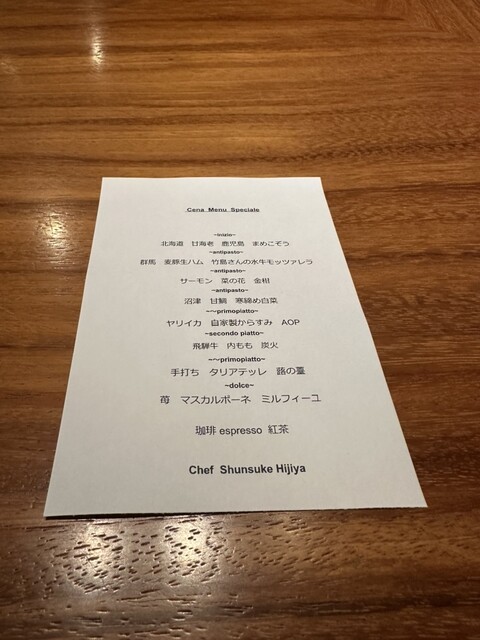 Cena Menu Speciale
~inizio~
北海道 甘海老 鹿児島 まめこぞう
~antipasto~
群馬 麦豚生ハム 竹島さんの水牛モッツァレラ
~antipasto~
サーモン 菜の花 金柑
~antipasto~
沼津 甘鯛 寒締め白菜
~~primopiatto~
ヤリイカ 自家製からすみ AOP
~secondo piatto~
飛騨牛 内もも 炭火
~~primopiatto~
手打ち タリアテッレ 蕗の薹
~dolce~
苺 マスカルポーネ ミルフィーユ
珈琲 espresso 紅茶
Chef Shunsuke Hijiya